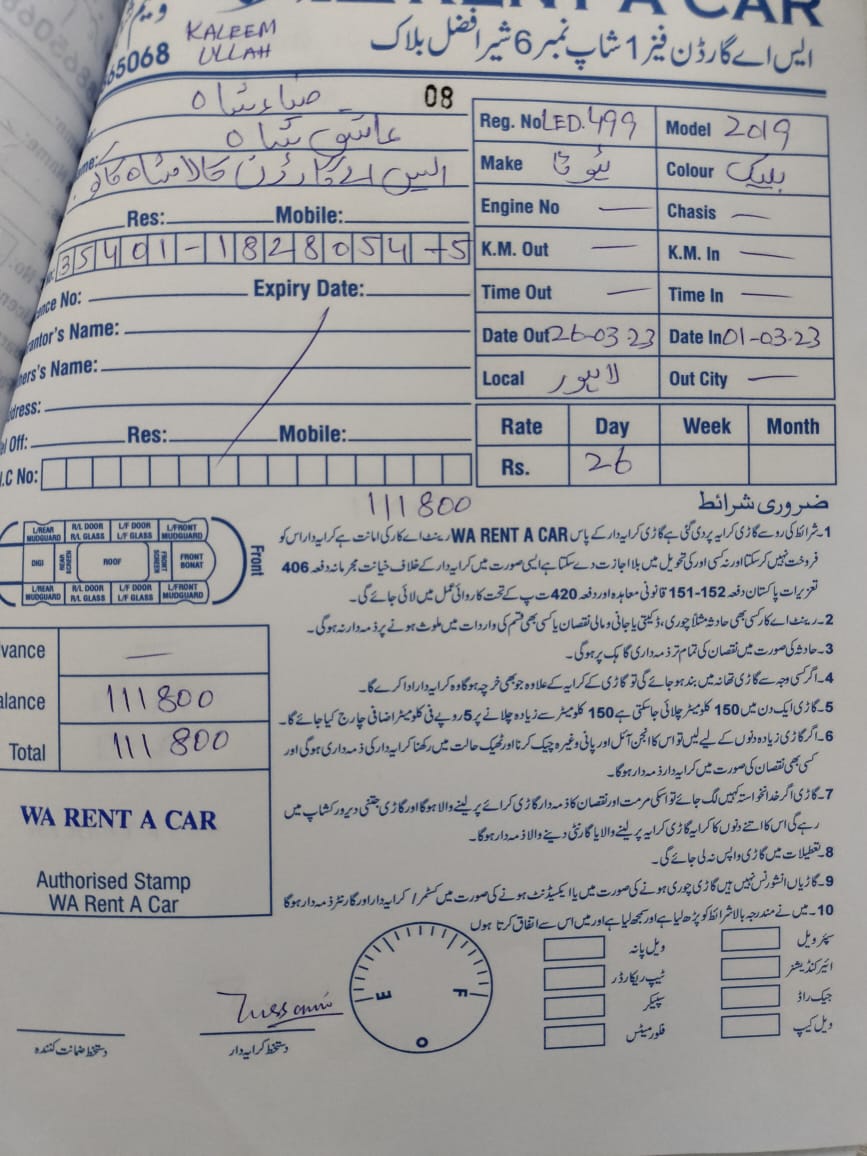 RENT A CAR
KALEEM
ULLAH
65068
ایس اے گارڈن فیز 1 شاپ نمبر 6 شیر افضل بلاک
08
ضیاء شاہ
عاشق شاہ
ایس اے گارڈن کالا شاہ کاکو
Res: Mobile:
35401-1828054-5
ence No: Expiry Date:
rantor's Name:
ners's Name:
dress:
el Off: Res: Mobile:
.C No:
Reg. No LED.499 Model 2019
Make ٹیوٹا Colour بلیک
Engine No — Chasis —
K.M. Out — K.M. In —
Time Out — Time In —
Date Out 26-03-23 Date In 01-03-23
Local لاہور Out City —
Rate Day Week Month
Rs. 26
111800
L/REAR MUDGUARD R/L DOOR R/L GLASS L/F DOOR L/F GLASS L/FRONT MUDGUARD
DIGI ROOF FRONT SCREEN FRONT BONAT
L/REAR MUDGUARD R/L DOOR R/L GLASS L/F DOOR L/F GLASS L/FRONT MUDGUARD
Front
vance —
alance 111800
Total 111800
WA RENT A CAR
Authorised Stamp
WA Rent A Car
ضروری شرائط
1۔ شرائط کی رو سے گاڑی کرایہ پر دی گئی ہے گاڑی کرایہ دار کے پاس WA RENT A CAR رینٹ اے کار کی امانت ہے کرایہ دار اس کو
فروخت نہیں کر سکتا اور نہ کسی اور کی تحویل میں بلا اجازت دے سکتا ہے ایسی صورت میں کرایہ دار کے خلاف خیانت مجرمانہ دفعہ 406
تعزیرات پاکستان دفعہ 152-151 قانونی معاہدہ اور دفعہ 420 ت پ کے تحت کاروائی عمل میں لائی جائے گی۔
2۔ رینٹ اے کار کسی بھی حادثہ مثلاً چوری، ڈکیتی یا جانی و مالی نقصان یا کسی بھی قسم کی واردات میں ملوث ہونے پر ذمہ دار نہ ہوگی۔
3۔ حادثہ کی صورت میں نقصان کی تمام تر ذمہ داری گاہک پر ہوگی۔
4۔ اگر کسی وجہ سے گاڑی تھانہ میں بند ہو جائے گی تو گاڑی کے کرایہ کے علاوہ جو بھی خرچہ ہوگا وہ کرایہ دار ادا کرے گا۔
5۔ گاڑی ایک دن میں 150 کلومیٹر چلائی جاسکتی ہے 150 کلومیٹر سے زیادہ چلانے پر 5 روپے فی کلومیٹر اضافی چارج کیا جائے گا۔
6۔ اگر گاڑی زیادہ دنوں کے لیے لیں تو اس کا انجن آئل اور پانی وغیرہ چیک کرنا اور ٹھیک حالت میں رکھنا کرایہ دار کی ذمہ داری ہوگی اور
کسی بھی نقصان کی صورت میں کرایہ دار ذمہ دار ہوگا۔
7۔ گاڑی اگر خدانخواستہ کہیں لگ جائے تو اسکی مرمت اور نقصان کا ذمہ دار گاڑی کرائے پر لینے والا ہوگا اور گاڑی جتنی دیر ورکشاپ میں
رہے گی اس کا اتنے دنوں کا کرایہ گاڑی کرایہ پر لینے والا یا گارنٹی دینے والا ذمہ دار ہوگا۔
8۔ تعطیلات میں گاڑی واپس نہ لی جائے گی۔
9۔ گاڑیاں انشورنس نہیں ہیں گاڑی چوری ہونے کی صورت میں یا ایکسیڈنٹ ہونے کی صورت میں کسٹمر / کرایہ دار اور گارنٹر ذمہ دار ہوگا
10۔ میں نے مندرجہ بالا شرائط کو پڑھ لیا ہے اور سمجھ لیا ہے اور میں اس سے اتفاق کرتا ہوں
سپئر ویل ویل پانہ
ائیر کنڈیشنر ٹیپ ریکارڈر
جیک راڈ سپیکر
ویل کیپ فلور میٹس
E F
O
دستخط کرایہ دار
دستخط ضمانت کنندہ